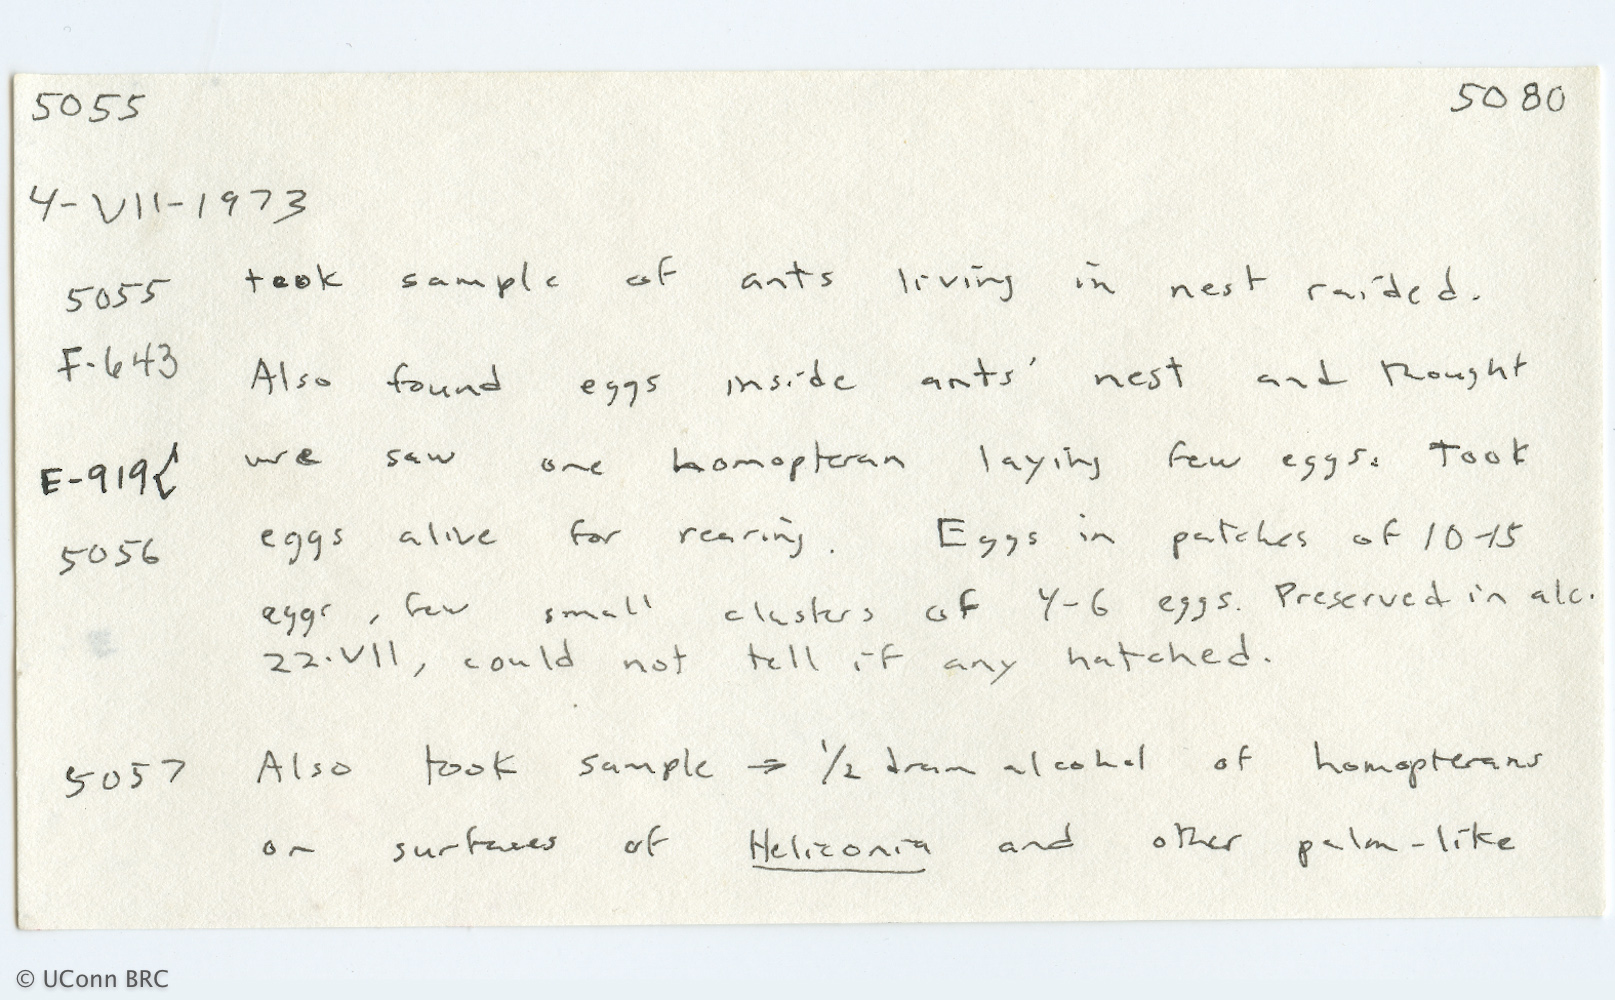 5055 5080
4-VII-1973
5055 took sample of ants living in nest raided.
F-643 Also found eggs inside ants' nest and thought
E-919{ we saw one homopteran laying few eggs. Took
5056 eggs alive for rearing. Eggs in patches of 10-15
eggs, few small clusters of 4-6 eggs. Preserved in alc.
22.VII, could not tell if any hatched.
5057 Also took sample ⇒ 1/2 dram alcohol of homopterans
on surfaces of Heliconia and other palm-like
© UConn BRC